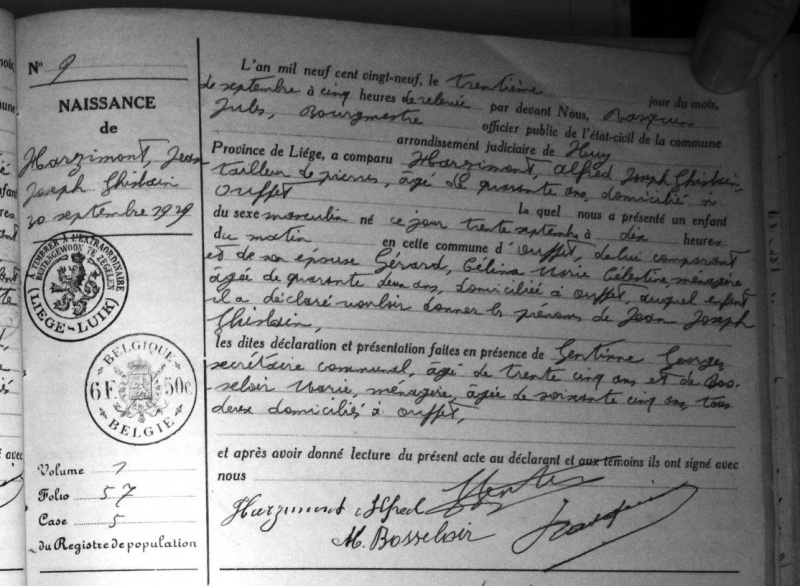 N° 9
NAISSANCE
de
Harzimont, Jean
Joseph Ghislain
30 septembre 1929
TIMBRER À L'EXTRAORDINAIRE
BUITENGEWOON TE ZEGELEN
(LIEGE-LUIK)
BELGIQUE
6F. 50c.
BELGIE
Volume 1
Folio 57
Case 5
du Registre de population
L'an mil neuf cent vingt-neuf, le trentième jour du mois,
de septembre à cinq heures de relevée par devant Nous,
Jules, Bourgmestre officier public de l'état-civil de la commune
arrondissement judiciaire de Huy
Province de Liége, a comparu Harzimont, Alfred Joseph Ghislain,
tailleur de pierres, âgé de quarante ans, domicilié à
Ouffet Le quel nous a présenté un enfant
du sexe masculin né ce jour trente septembre à dix heures
du matin en cette commune d'Ouffet, de lui comparant
et de son épouse Gérard, Célina Marie Célestine, ménagère
âgée de quarante deux ans, domiciliée à Ouffet, auquel enfant
il a déclaré vouloir donner les prénoms de Jean Joseph
Ghislain,
les dites déclaration et présentation faites en présence de Gentinne Georges
secrétaire communal, âgé de trente cinq ans et de Bos-
seloir Marie, ménagère, âgée de soixante cinq ans, tous
deux domiciliés à Ouffet,
et après avoir donné lecture du présent acte au déclarant et aux témoins ils ont signé avec
nous
Harzimont Alfred
M. Bosseloir